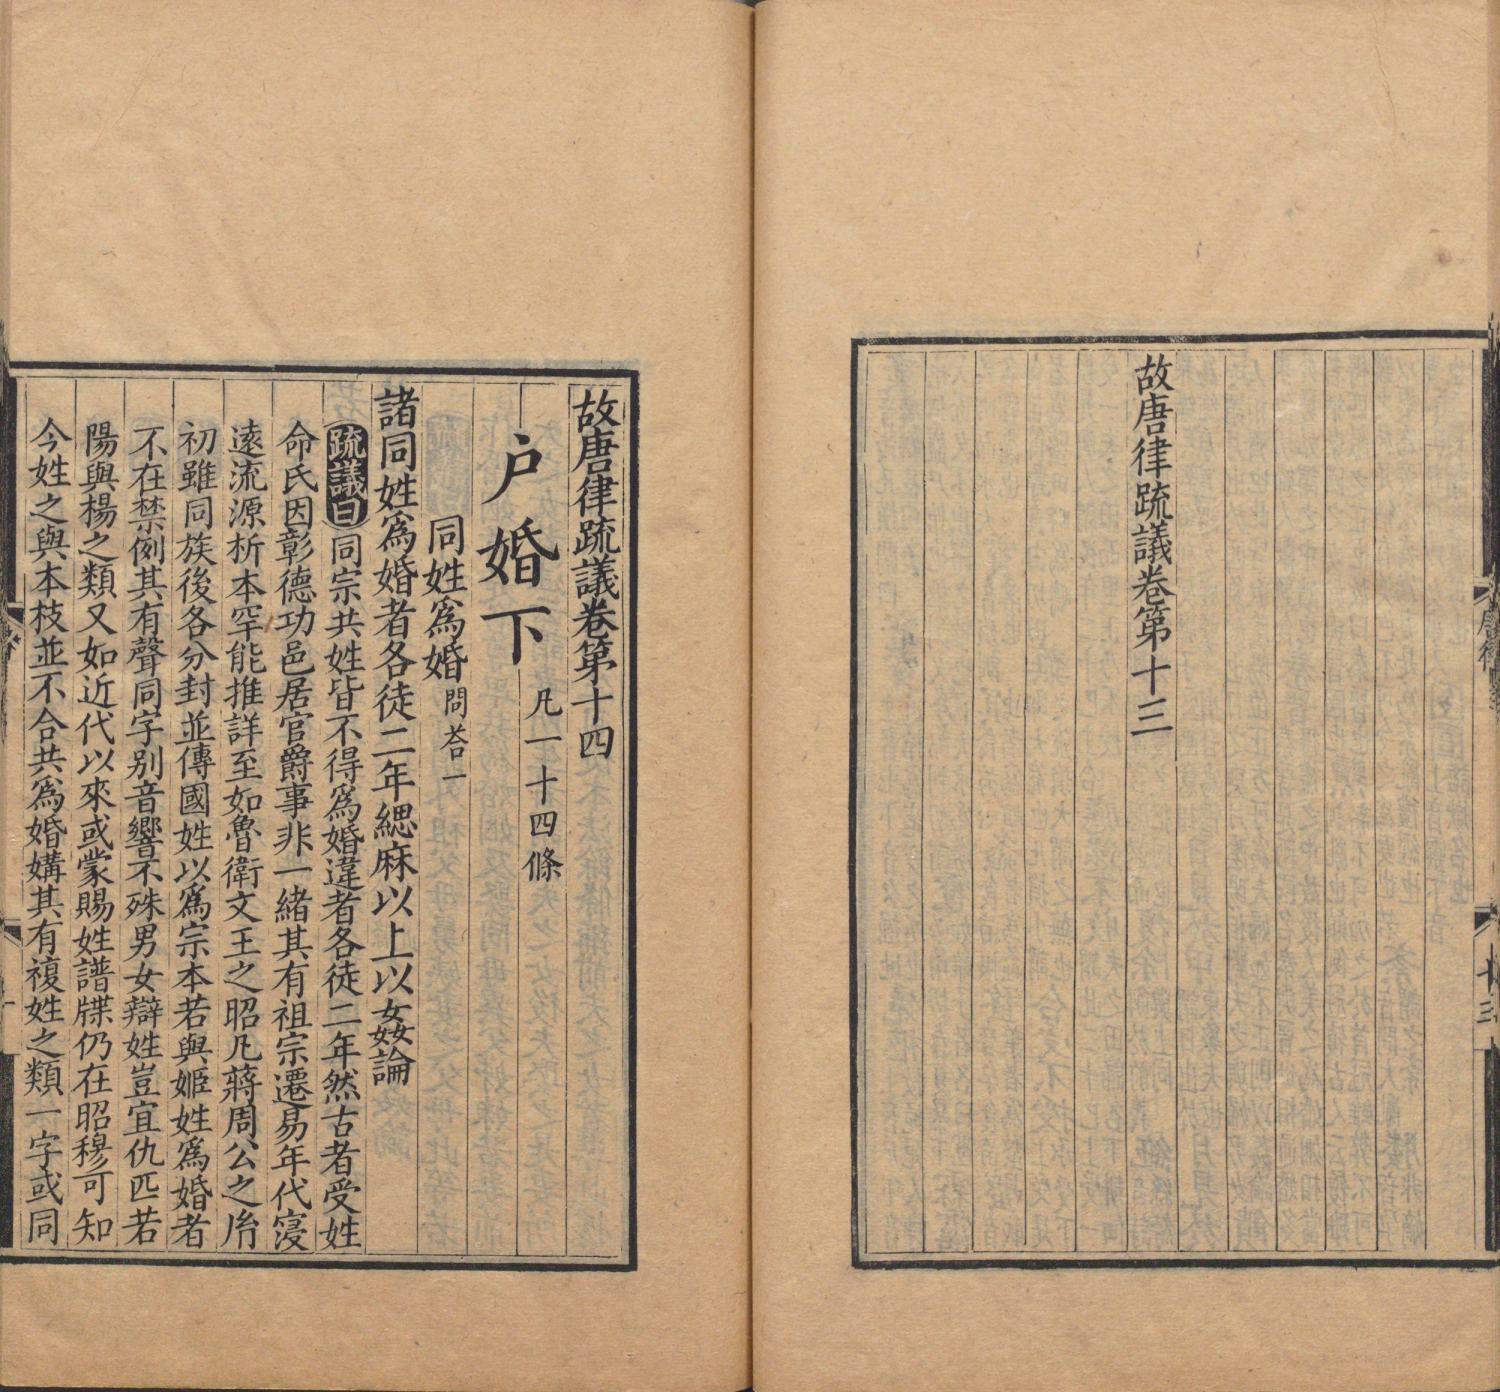 故唐律疏議卷第十三
故唐律疏議卷第十四
户婚下凡一十四條
同姓爲婚問荅一
諸同姓爲婚者各徒二年緦麻以上以姦論
疏議曰同宗共姓皆不得爲婚違者各徒二年然古者受姓
命氏因彰德功邑居官爵事非一緒其有祖宗遷易年代寖
遠流源析本罕能推詳至如魯衛文王之昭凡蔣周公之胤
初雖同族後各分封並傳國姓以爲宗本若與姬姓爲婚者
不在禁例其有聲同字别音響不殊男女辯姓豈宜仇匹若
陽與楊之類又如近代以來或蒙賜姓譜牒仍在昭穆可知
今姓之與本枝並不合共爲婚媾其有複姓之類一字或同